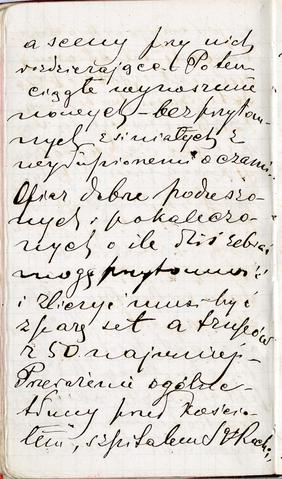 a sceny przy nich
rozdzierające. Potem
ciągłe wynoszenie
nowych – bezprzytom-
nych zsiniałych z
wysłupionemi oczami.
Ofiar dobrze poduszo-
nych i pokaleczo-
nych o ile dziś zebrać
mogę przytomność
i zliczyć musi być
z parę set a trupów
z 50 najmniej –
Przerażenie ogólne –
tłumy przed kościo-
łem, szpitalem Sgo Rocha,